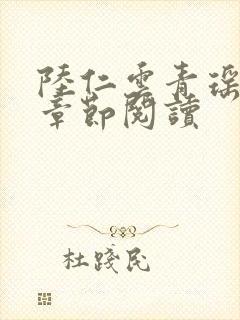 陸仁雲青瑤
章節閱讀
杜踐民